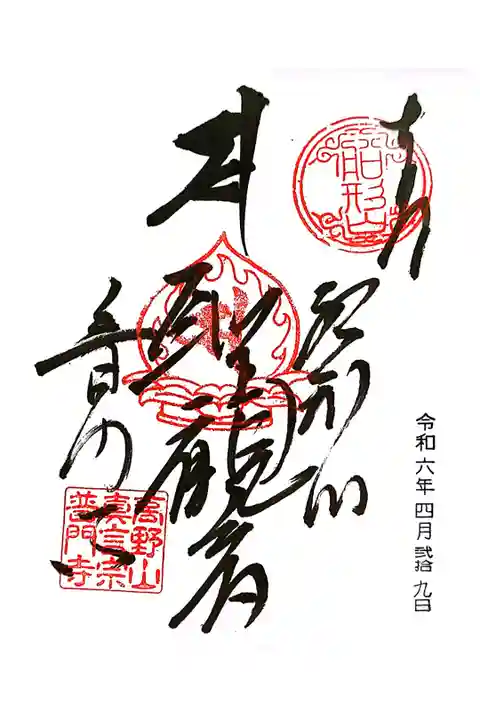 奉拝
船形山
船形山
聖観音
普門寺
高野山
真言宗
普門寺
令和六年四月弐拾九日